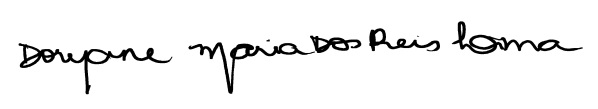 Doryane Maria Dos Reis Lama